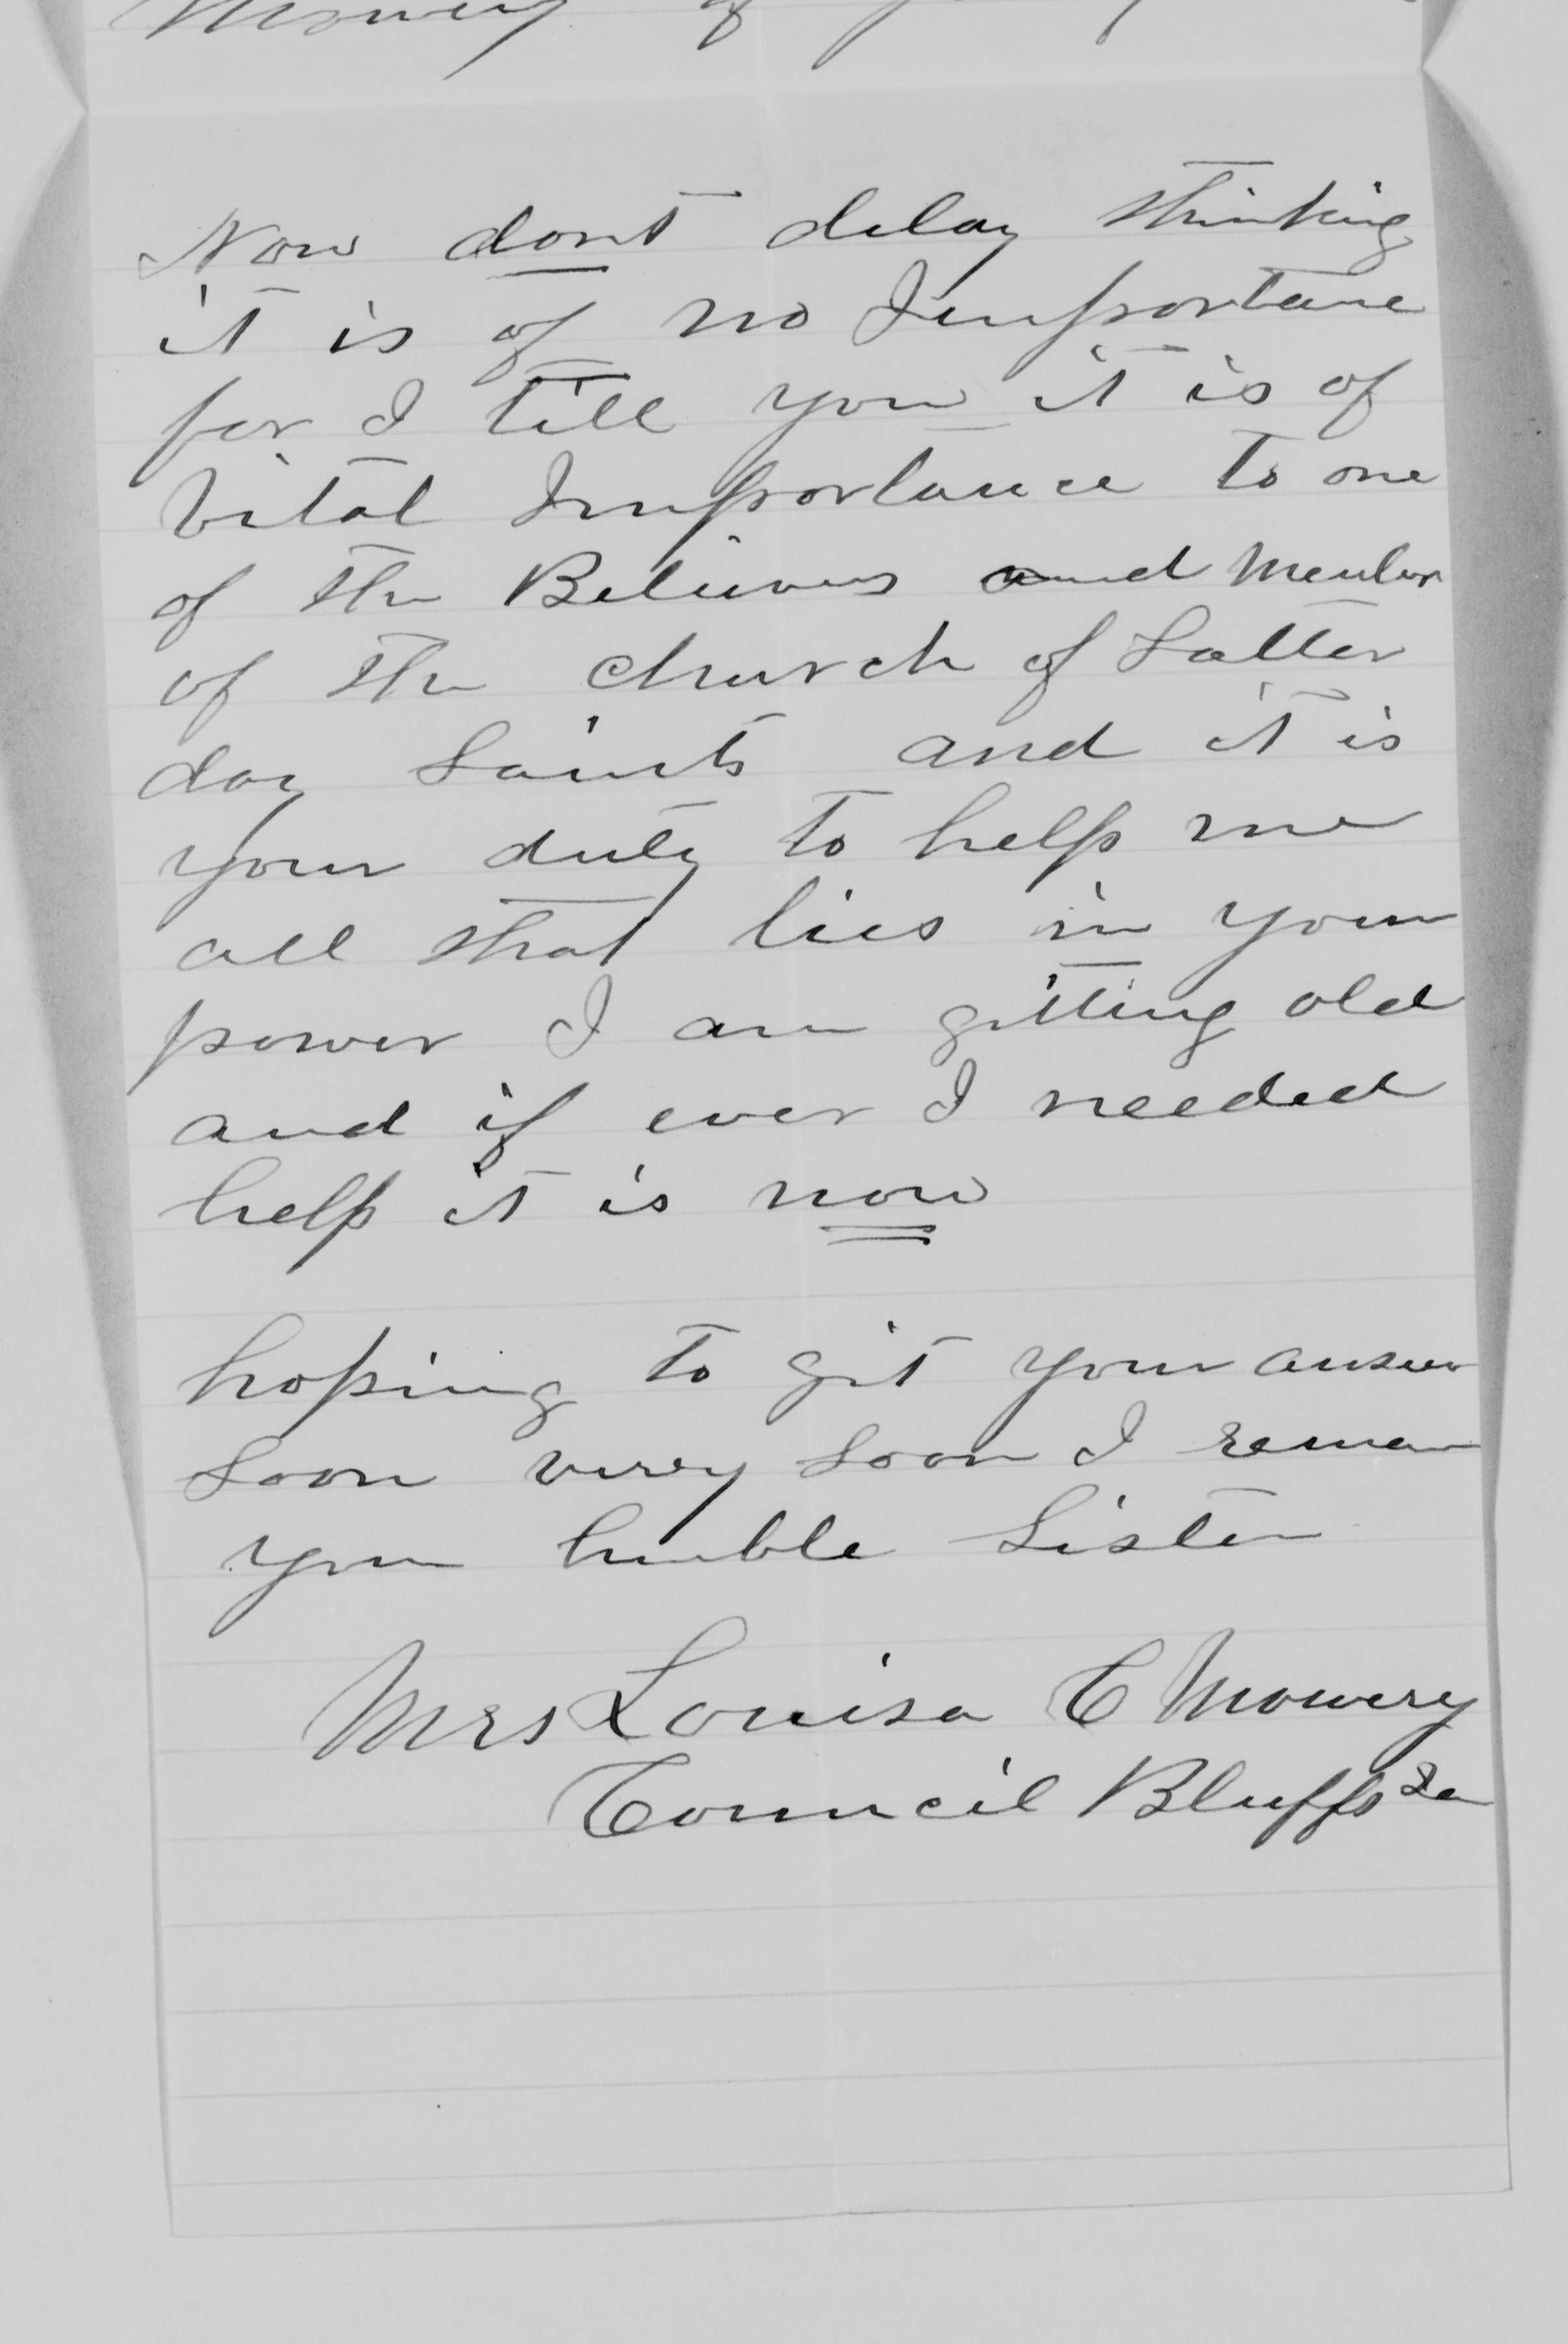 Now dont delay thinking
it is of no Importance
for I till you it is of
Vital Importance to one
of the Believers and Member
of the church of Latter
day Saints and it is
your duty to help me
all that lies in your
power I am gitting old
and if ever I needed
help it is now
hoping to git your answer
soon verry soon I remain
your humble Sister
Mrs Louisa C Mowery
Council Bluffs Ia